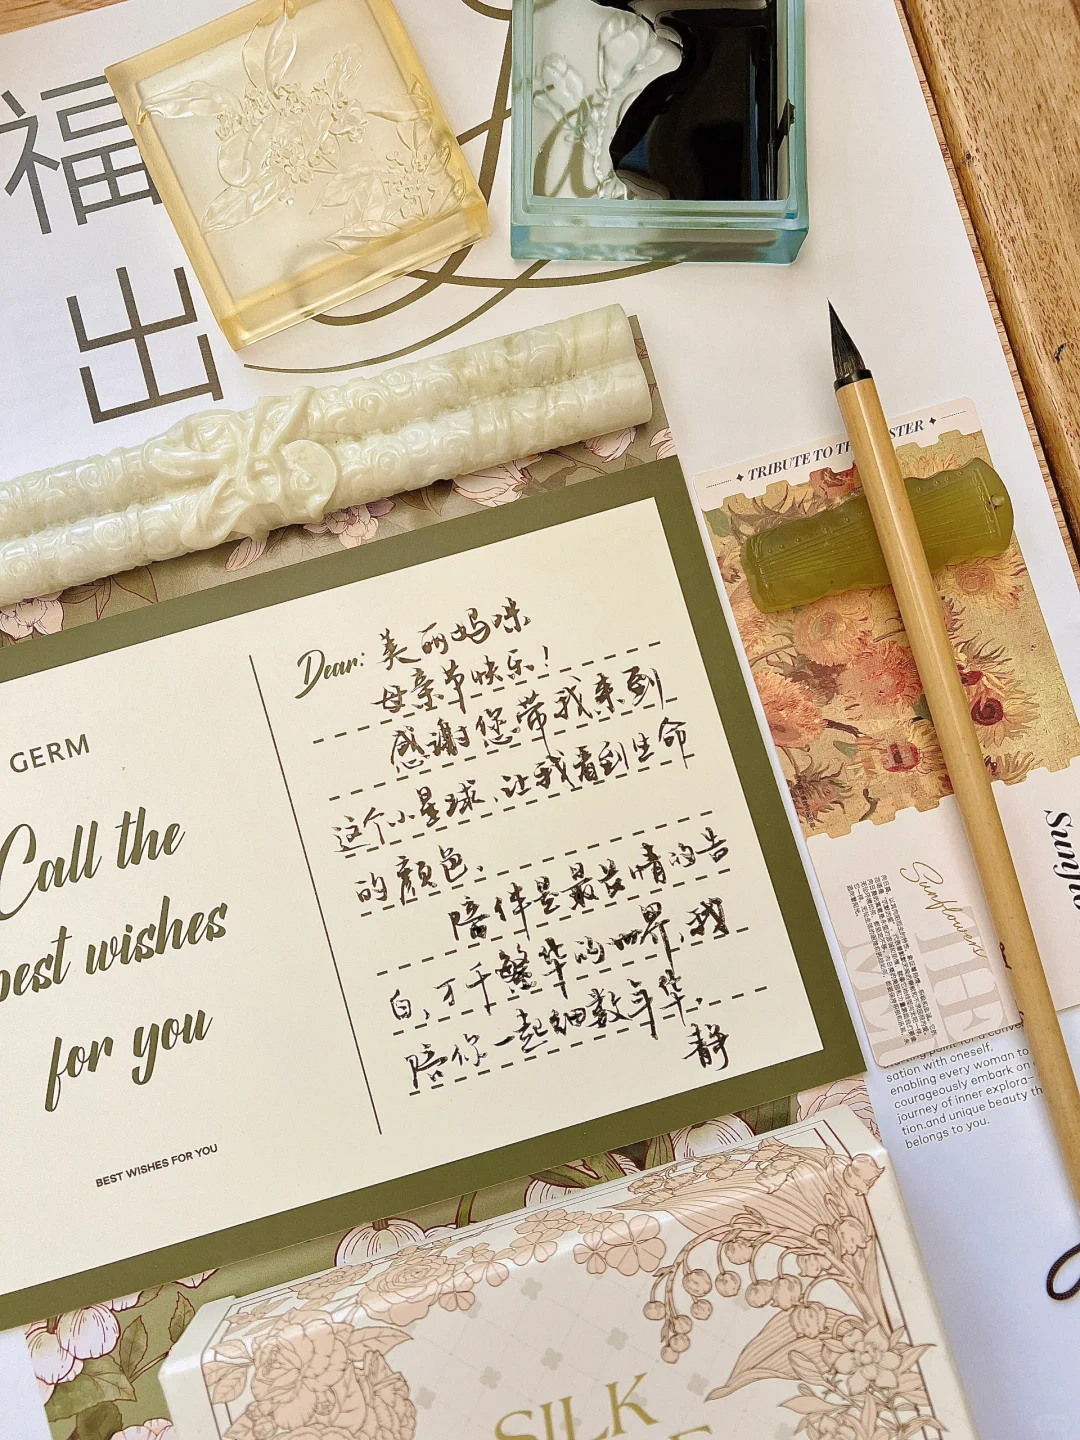 福
出
TRIBUTE TO TH
STER
GERM
Call the
best wishes
for you
BEST WISHES FOR YOU
Dear: 美丽妈咪
母亲节快乐!
感谢您带我来到
这个小星球,让我看到生命
的颜色,
陪伴是最长情的告
白,万千繁华的世界,我
陪你一起细数年华,
静
Sunflowers
THE
sation with oneself,
enabling every woman to
courageously embark on
journey of inner explora-
tion.and unique beauty th
belongs to you.
SILK